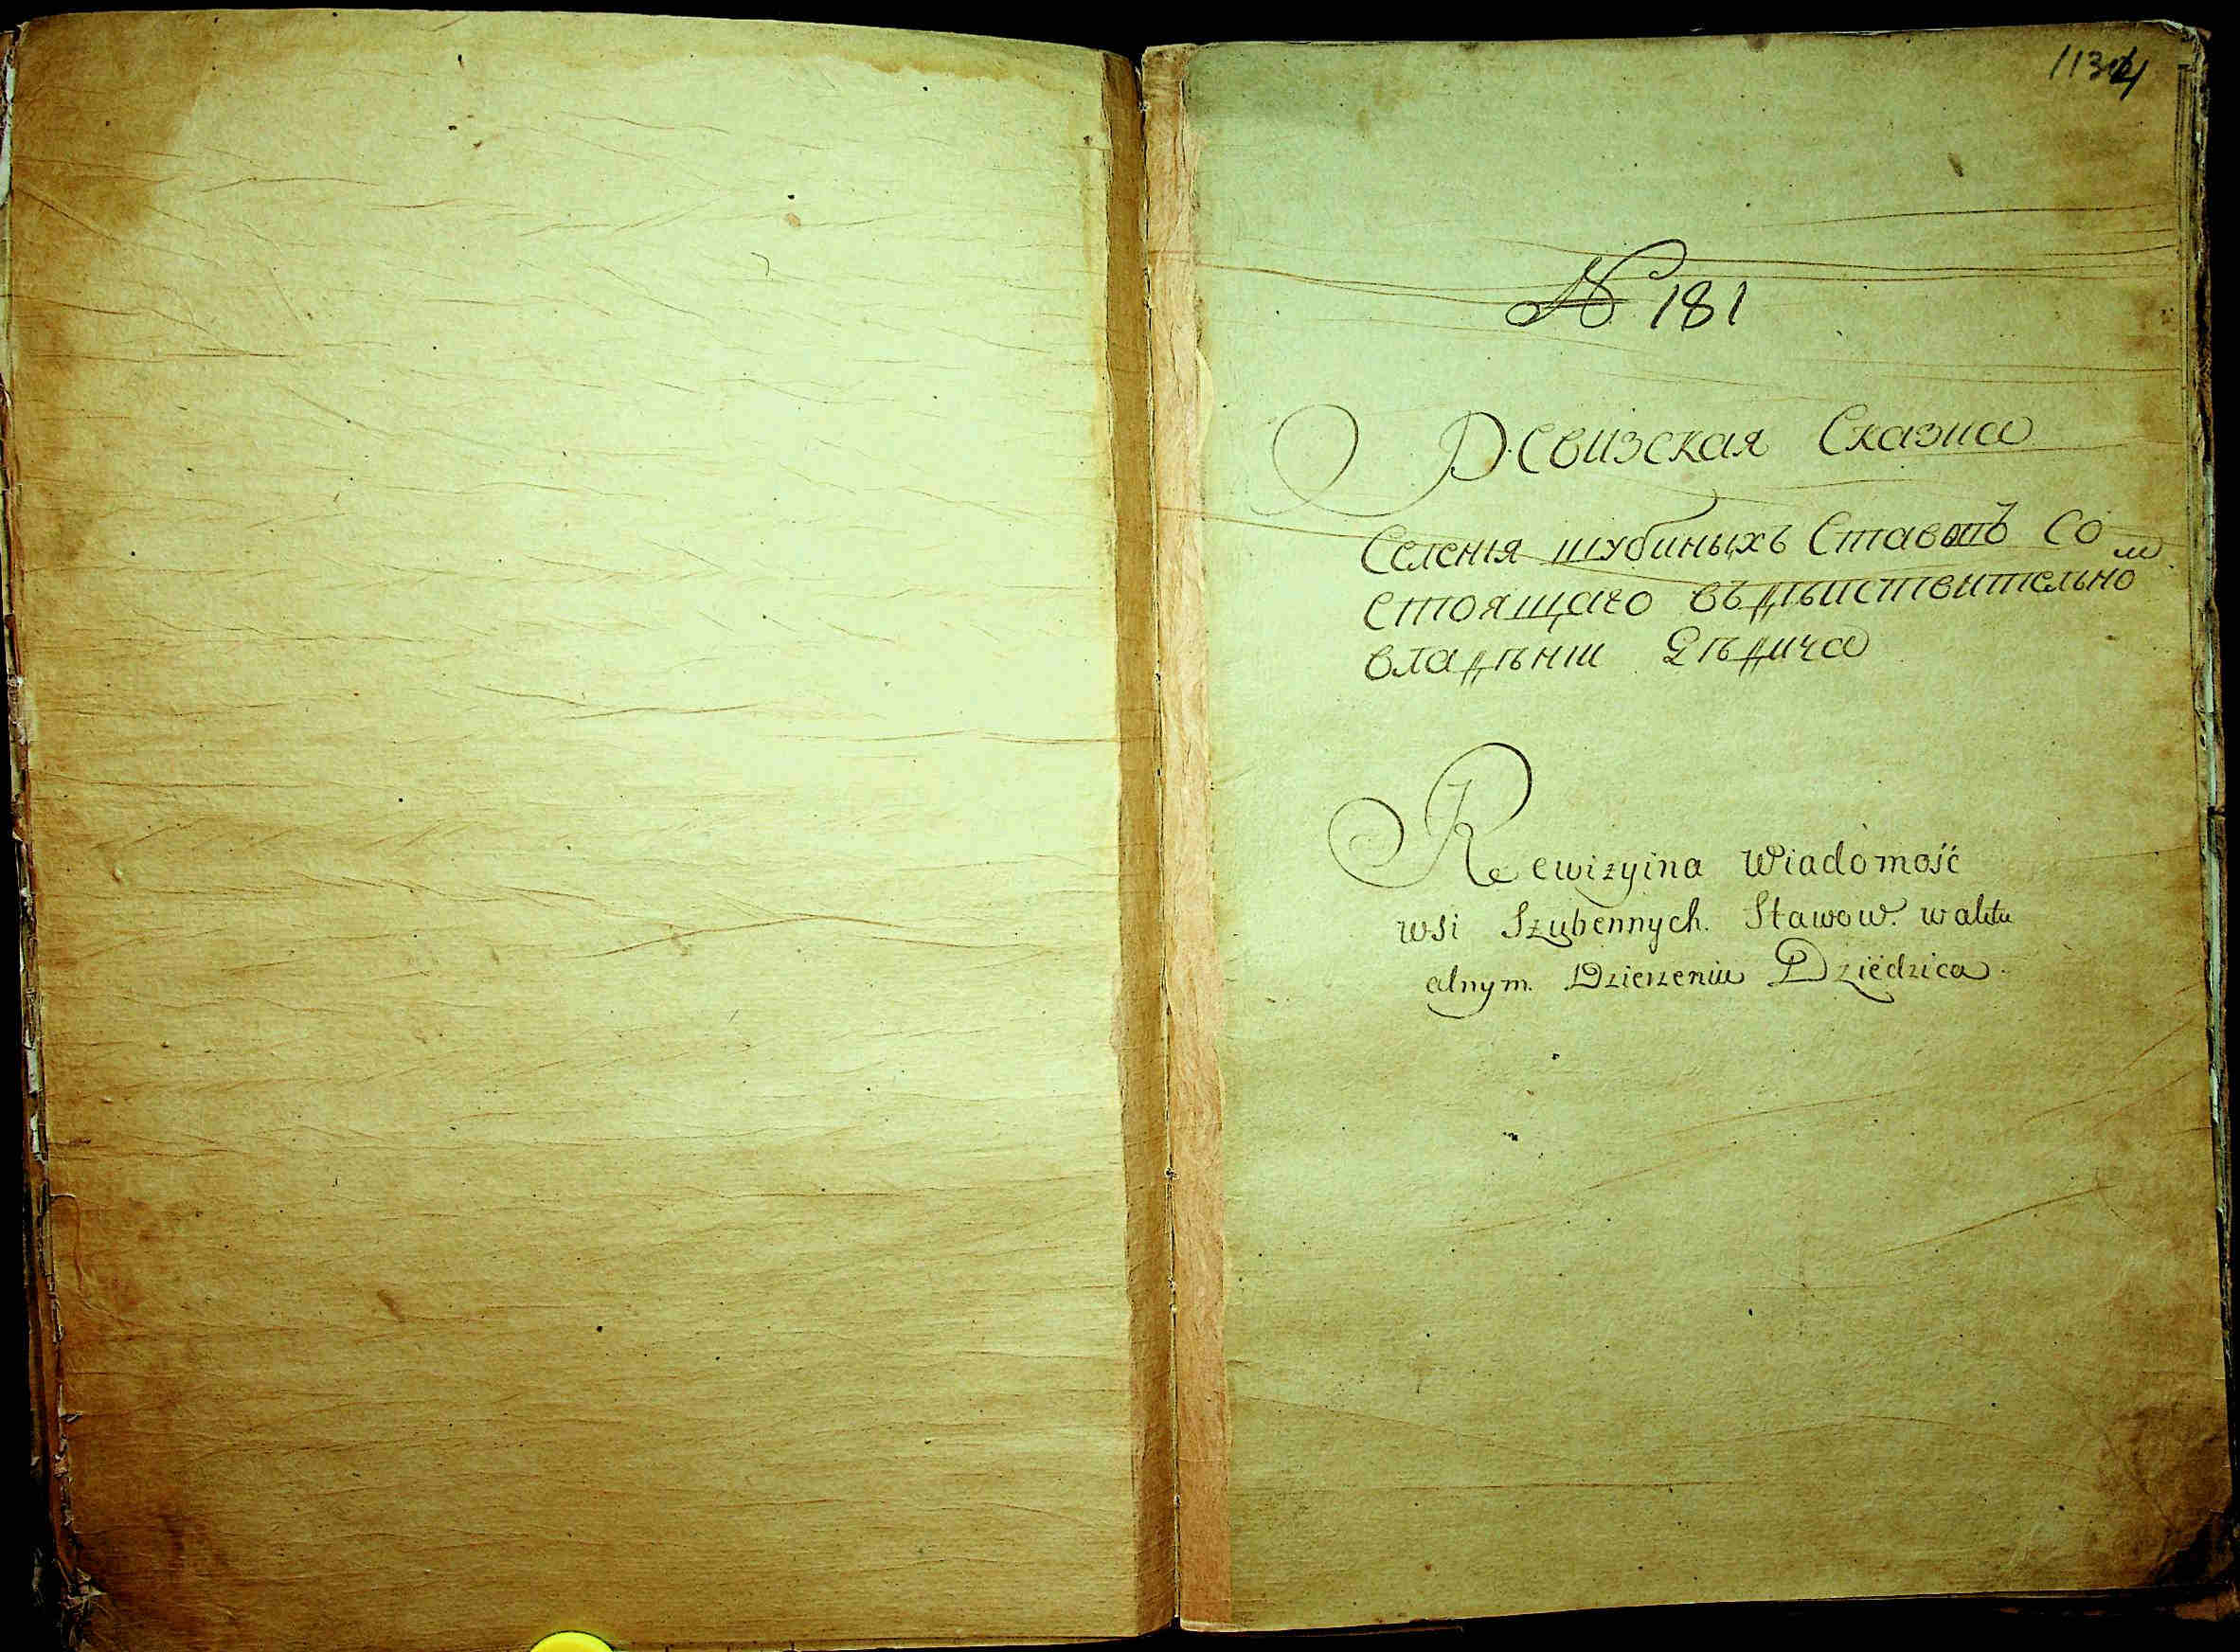 1134
№ 181
Ревизская Сказка
Селенія шубиныхъ Ставовъ Со
стоящаго въ дѣйствительном
владѣніи Дѣдича
Rewizyina Wiadomość
wsi Szubennych. Stawow. waktu
alnym. Dzierzeniu Dziedzica.